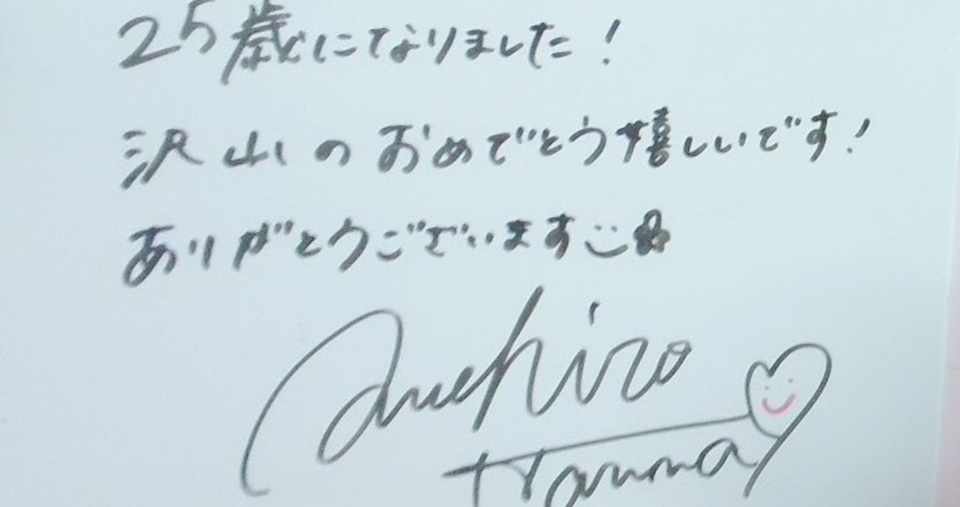 25歳になりました！
沢山のおめでとう嬉しいです！
ありがとうございます